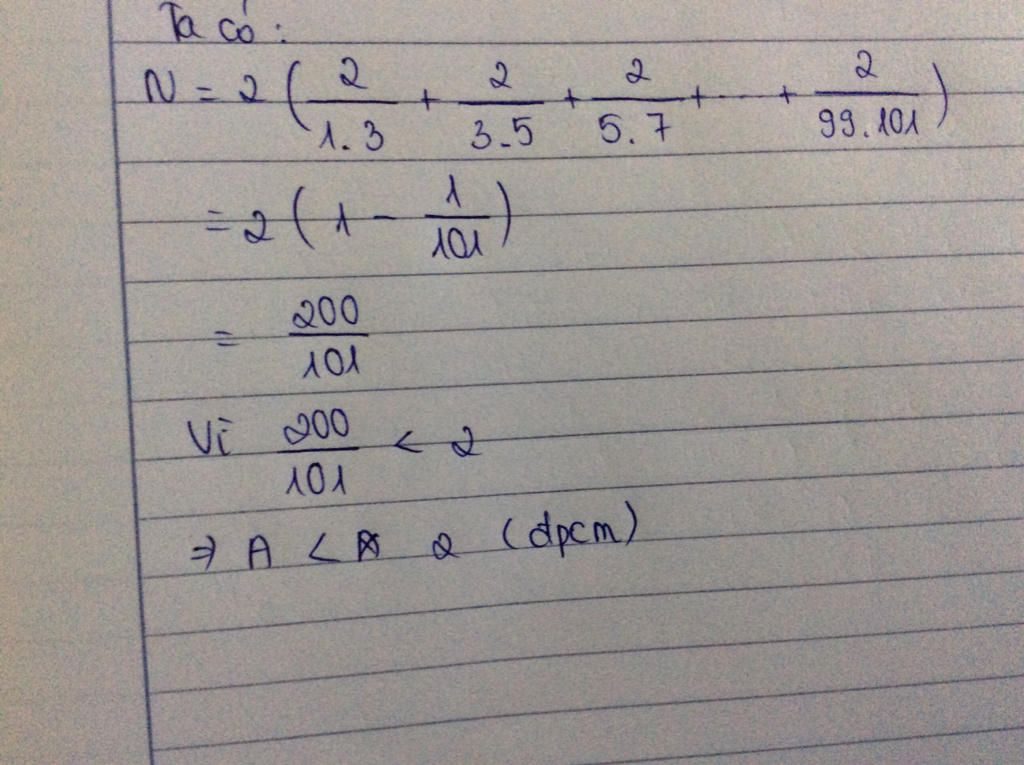 Ta có:
N = 2 ( 2/1.3 + 2/3.5 + 2/5.7 + ... + 2/99.101 )
= 2 ( 1 - 1/101 )
= 200/101
Vì 200/101 < 2
⇒ A < 2 (đpcm)